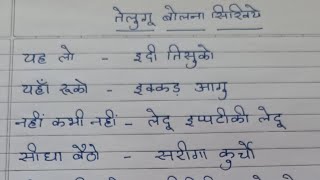 तेलुगू बोलना सिखिये
यह लो - इदी तिसुको
यहाँ रूको - इक्कड़ आगु
नहीं कभी नहीं - लेदू इप्पटीकी लेदू
सीधा बैठो - सरीगा कुर्चो